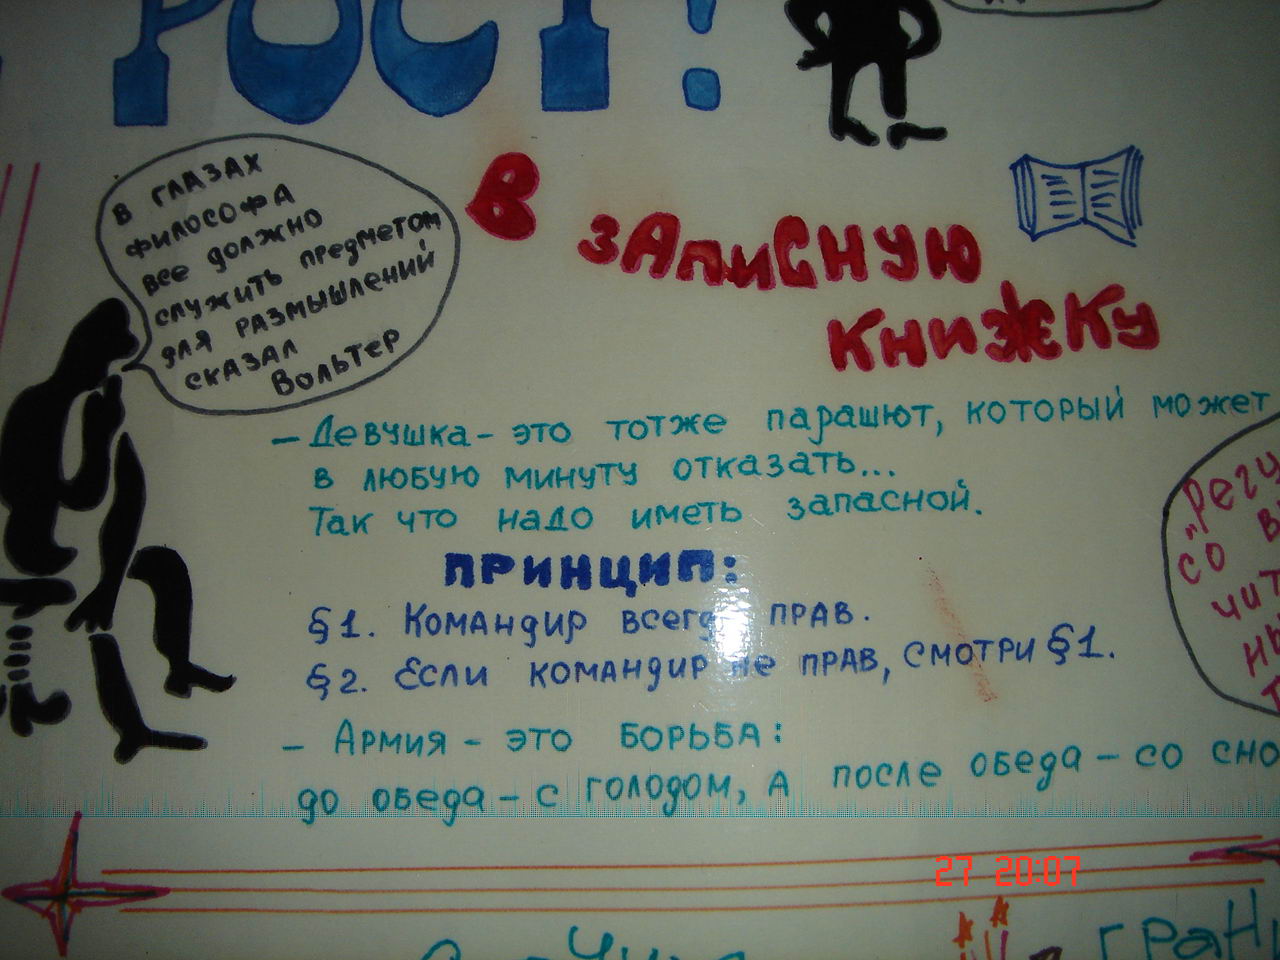 РОСТ!
В ГЛАЗАХ
ФИЛОСОФА
ВСЕ ДОЛЖНО
СЛУЖИТЬ ПРЕДМЕТОМ
ДЛЯ РАЗМЫШЛЕНИЙ
СКАЗАЛ
ВОЛЬТЕР
В
ЗАПИСНУЮ
КНИЖКУ
– Девушка – это тотже парашют, который может
в любую минуту отказать...
Так что надо иметь запасной.
ПРИНЦИП:
§1. Командир всегда прав.
§2. Если командир не прав, смотри §1.
– Армия – это борьба:
до обеда – с голодом, а после обеда – со сно
„Регу
со в
чит
27 20:07